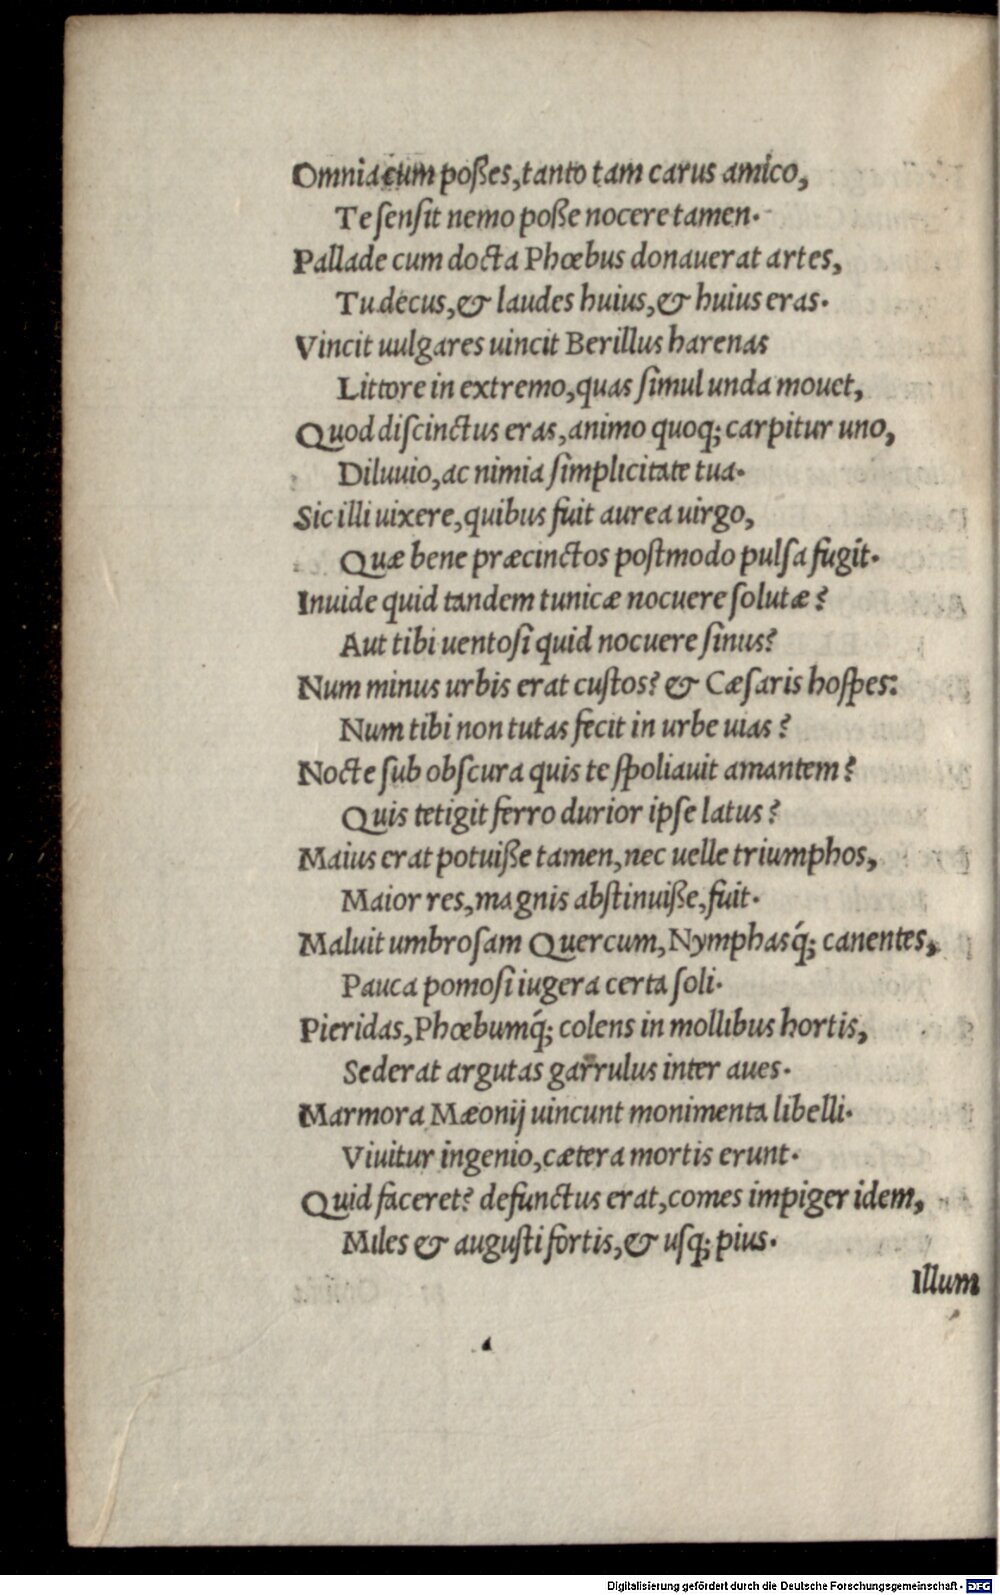 Omnia cum poßes, tanto tam carus amico,
Te ſenſit nemo poße nocere tamen.
Pallade cum docta Phœbus donauerat artes,
Tu decus, & laudes huius, & huius eras.
Vincit uulgares uincit Berillus harenas
Littore in extremo, quas ſimul unda mouet,
Quod diſcinctus eras, animo quoq; carpitur uno,
Diluuio, ac nimia ſimplicitate tua.
Sic illi uixere, quibus fuit aurea uirgo,
Quæ bene præcinctos poſtmodo pulſa fugit.
Inuide quid tandem tunicæ nocuere ſolutæ?
Aut tibi uentoſi quid nocuere ſinus?
Num minus urbis erat cuſtos? & Cæſaris hoſpes:
Num tibi non tutas fecit in urbe uias?
Nocte ſub obſcura quis te ſpoliauit amantem?
Quis tetigit ferro durior ipſe latus?
Maius erat potuiße tamen, nec uelle triumphos,
Maior res, magnis abſtinuiße, fuit.
Maluit umbroſam Quercum, Nymphasq́; canentes,
Pauca pomoſi iugera certa ſoli.
Pieridas, Phœbumq́; colens in mollibus hortis,
Sederat argutas garrulus inter aues.
Marmora Mæonij uincunt monimenta libelli.
Viuitur ingenio, cætera mortis erunt.
Quid faceret? defunctus erat, comes impiger idem,
Miles & auguſti fortis, & uſq; pius.
Illum
Digitalisierung gefördert durch die Deutsche Forschungsgemeinschaft - DFG